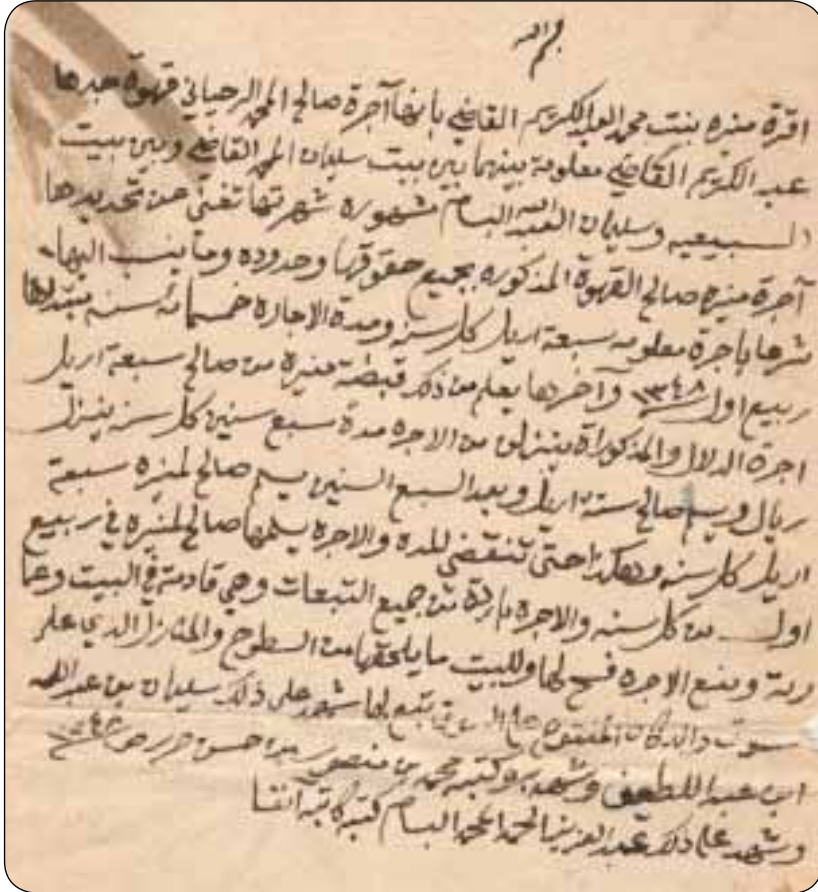 بسم الله
اقرة منيره بنت محمد العبد الكريم القاضي بانها آجرة صالح المحمد الرحياني قهوة جدها
عبد الكريم القاضي معلومة بينهما بين بيت سليمان المحمد القاضي وبين بيت
السبيعيه وسليمان العبد الله البسام مشهوره شهرتها تغني عن تحديدها
آجرة منيره صالح القهوة المذكوره بجميع حقوقها وحدوده وما ينسب اليها
شرها باجرة معلومه سبعة اريل كل سنه ومدة الاجاره خمسمائة سنه مبتداها
ربيع اول ١٣٤٨ وآخرها يعلم من ذكر قبضة منيرة من صالح سبعة اريل
اجرة الدلال والمذكوراة ينزلن من الاجره مدة سبع سنين كل سنه ينزل
ريال ويسلم صالح ستة اريل وبعد السبع السنين يسلم صالح لمنيره سبعة
اريل كل سنه وهكذا حتى تنقضي المدة والاجره يسلمها صالح لمنيره في ربيع
اول من كل سنه والاجره باردة من جميع التبعات وهي قادمة في البيت وعما
رته ومنع الاجره فسح لها وللبيت ما يلحقها من السطوح والمنازل الذي على
سوق والدكان المفتوح تبع لها شهد على ذلك سليمان بن عبدالله
ابن عبد اللطيف وشهد به وكتبه محمد بن منصور بن حسن ١٣٤٨
وشهد على ذلك عبد العزيز المحمد البسام كتبه كاتبه